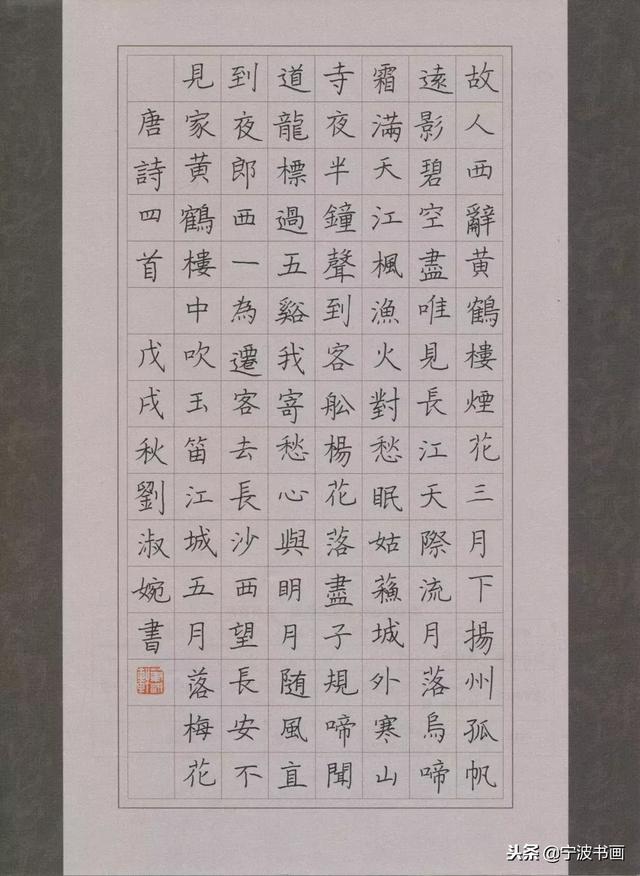 故人西辭黃鶴樓煙花三月下揚州孤帆
遠影碧空盡唯見長江天際流月落烏啼
霜滿天江楓漁火對愁眠姑蘓城外寒山
寺夜半鐘聲到客舩楊花落盡子規啼聞
道龍標過五谿我寄愁心與眀月随風直
到夜郎西一為遷客去長沙西望長安不
見家黃鶴樓中吹玉笛江城五月落梅花
唐詩四首 戊戌秋劉淑婉書
头条 @宁波书画